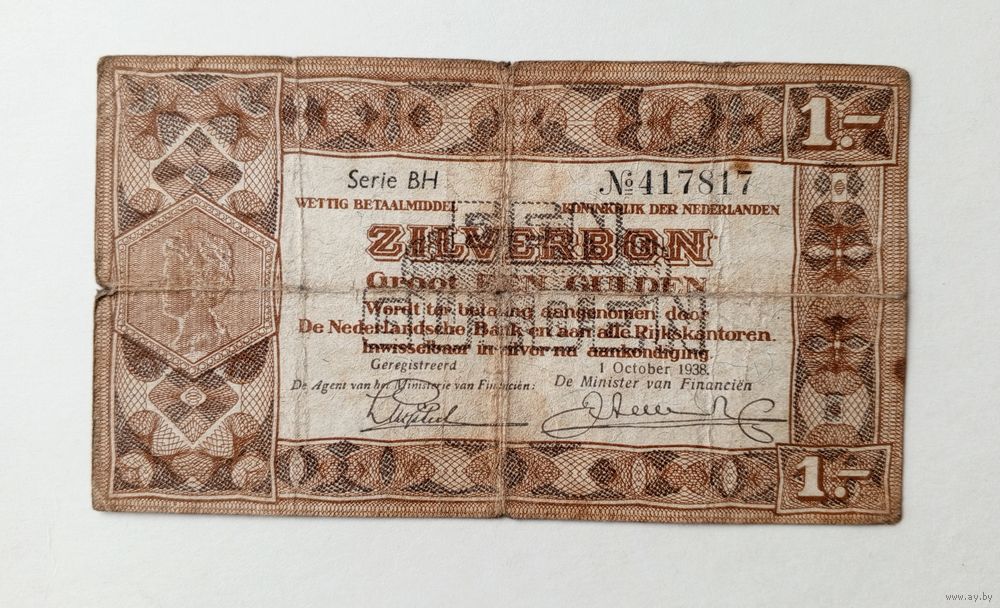 1.-
Serie BH № 417817
WETTIG BETAALMIDDEL KONINKRIJK DER NEDERLANDEN
ZILVERBON
Groot EEN GULDEN
EEN
GULDEN
Wordt ter betaling aangenomen door
De Nederlandsche Bank en aan alle Rijkskantoren.
Inwisselbaar in zilver na aankondiging.
Geregistreerd 1 October 1938.
De Agent van het Ministerie van Financiën: De Minister van Financiën
1.-
www.ay.by